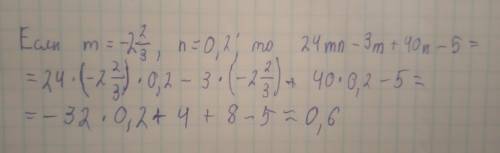 Если m = -2 2/3, n = 0,2, то 24mn - 3m + 40n - 5 =
= 24 · (-2 2/3) · 0,2 - 3 · (-2 2/3) + 40 · 0,2 - 5 =
= -32 · 0,2 + 4 + 8 - 5 = 0,6